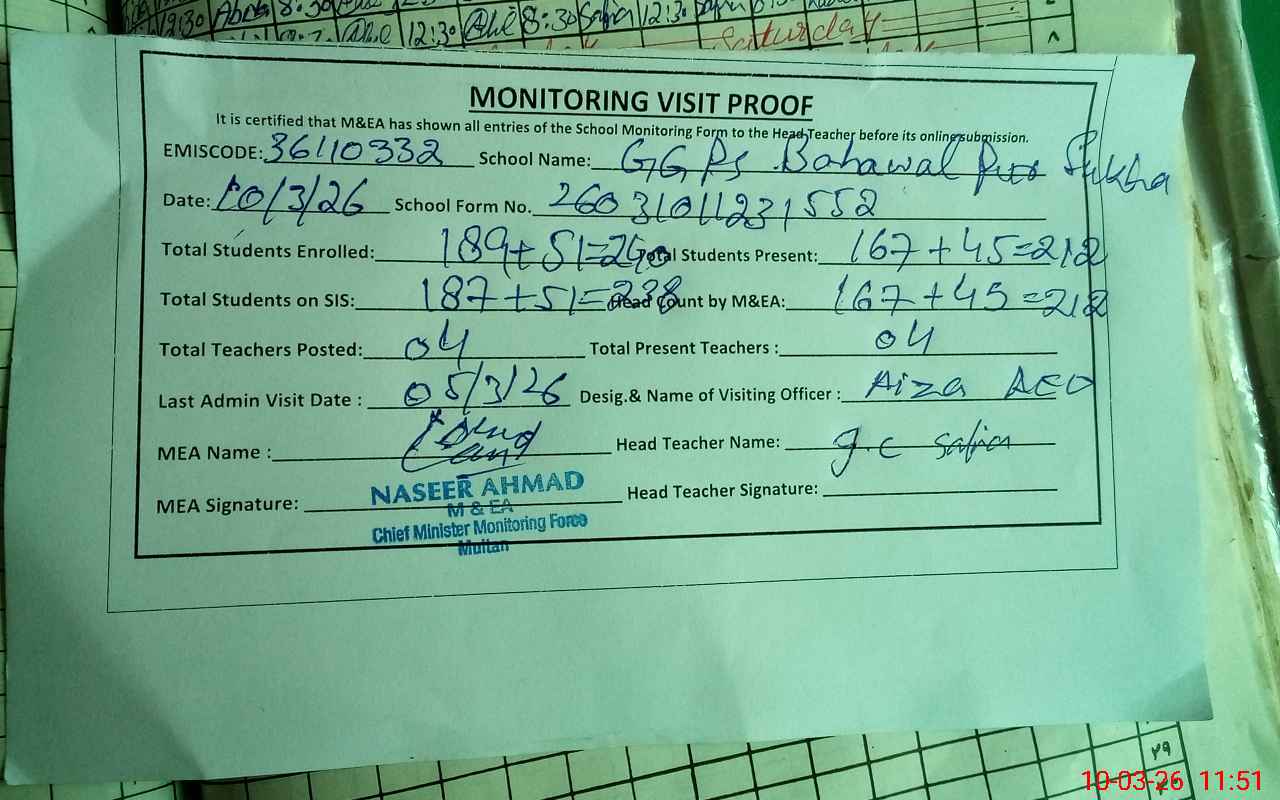 12:30 Abida 8:30 12:30 8:30 Safia 12:30
Saturday
MONITORING VISIT PROOF
It is certified that M&EA has shown all entries of the School Monitoring Form to the Head Teacher before its online submission.
EMISCODE: 36110332 School Name: GGPS Bahawal Pur Sukha
Date: 10/3/26 School Form No. 26031011231552
Total Students Enrolled: 189+51=240 Total Students Present: 167+45=212
Total Students on SIS: 187+51=238 Head Count by M&EA: 167+45=212
Total Teachers Posted: 04 Total Present Teachers : 04
Last Admin Visit Date : 05/3/26 Desig.& Name of Visiting Officer : Aiza AEO
MEA Name : Head Teacher Name: g.c safia
MEA Signature: Head Teacher Signature:
NASEER AHMAD
M & EA
Chief Minister Monitoring Force
Multan
۲۹
10-03-26 11:51